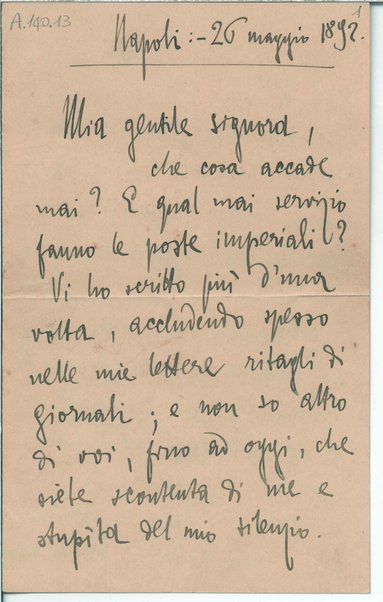 A.140.13
1
Napoli:-26 maggio 1892.
Mia gentile signora,
che cosa accade
mai? E qual mai servizio
fanno le poste imperiali?
Vi ho scritto più d'una
volta, accludendo spesso
nelle mie lettere ritagli di
giornali; e non so altro
di voi, fino ad oggi, che
siete scontenta di me e
stupita del mio silenzio.